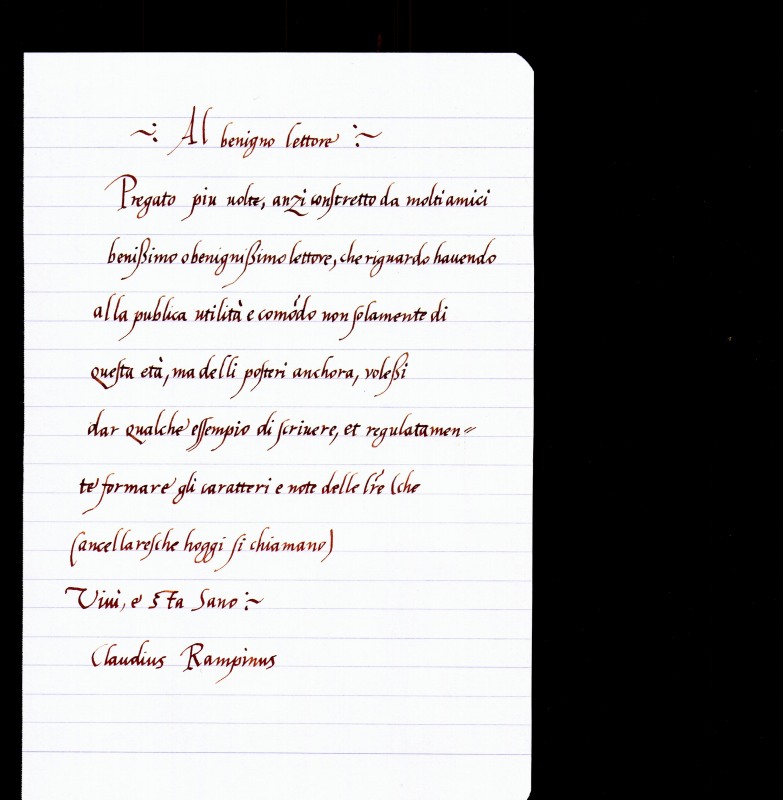 ~: Al benigno lettore :~
Pregato piu uolte, anzi conſtretto da molti amici
benißimo o benignißimo lettore, che riguardo hauendo
alla publica utilità e comódo non ſolamente di
queſta età, ma delli poſteri anchora, voleßi
dar qualche eſſempio di ſcriuere, et regulatamen=
te formare gli caratteri e note delle lr̃e (che
Cancellareſche hoggi ſi chiamano)
Viui, e Sta Sano :~
Claudius Rampinus